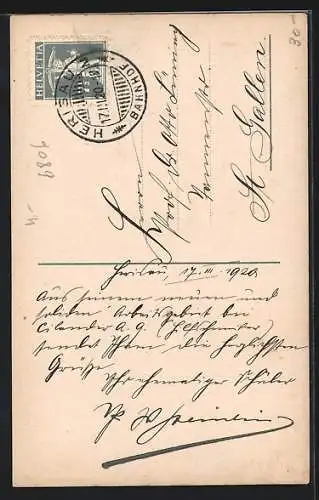 HELVETIA
HERISAU
17.III.20
BAHNHOF
30-
9089
-4
Herrn
Prof. Dr. Otto
St. Gallen
Herisau, 17. III. 1920.
Aus seinem neuen und
soliden Arbeitsgebiet bei
Cilander A. G.
sendet Ihnen die herzlichsten
Grüsse
Ihr ehemaliger Schüler